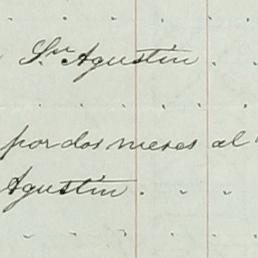 Sn Agustín.
por dos meses al
Agustín.